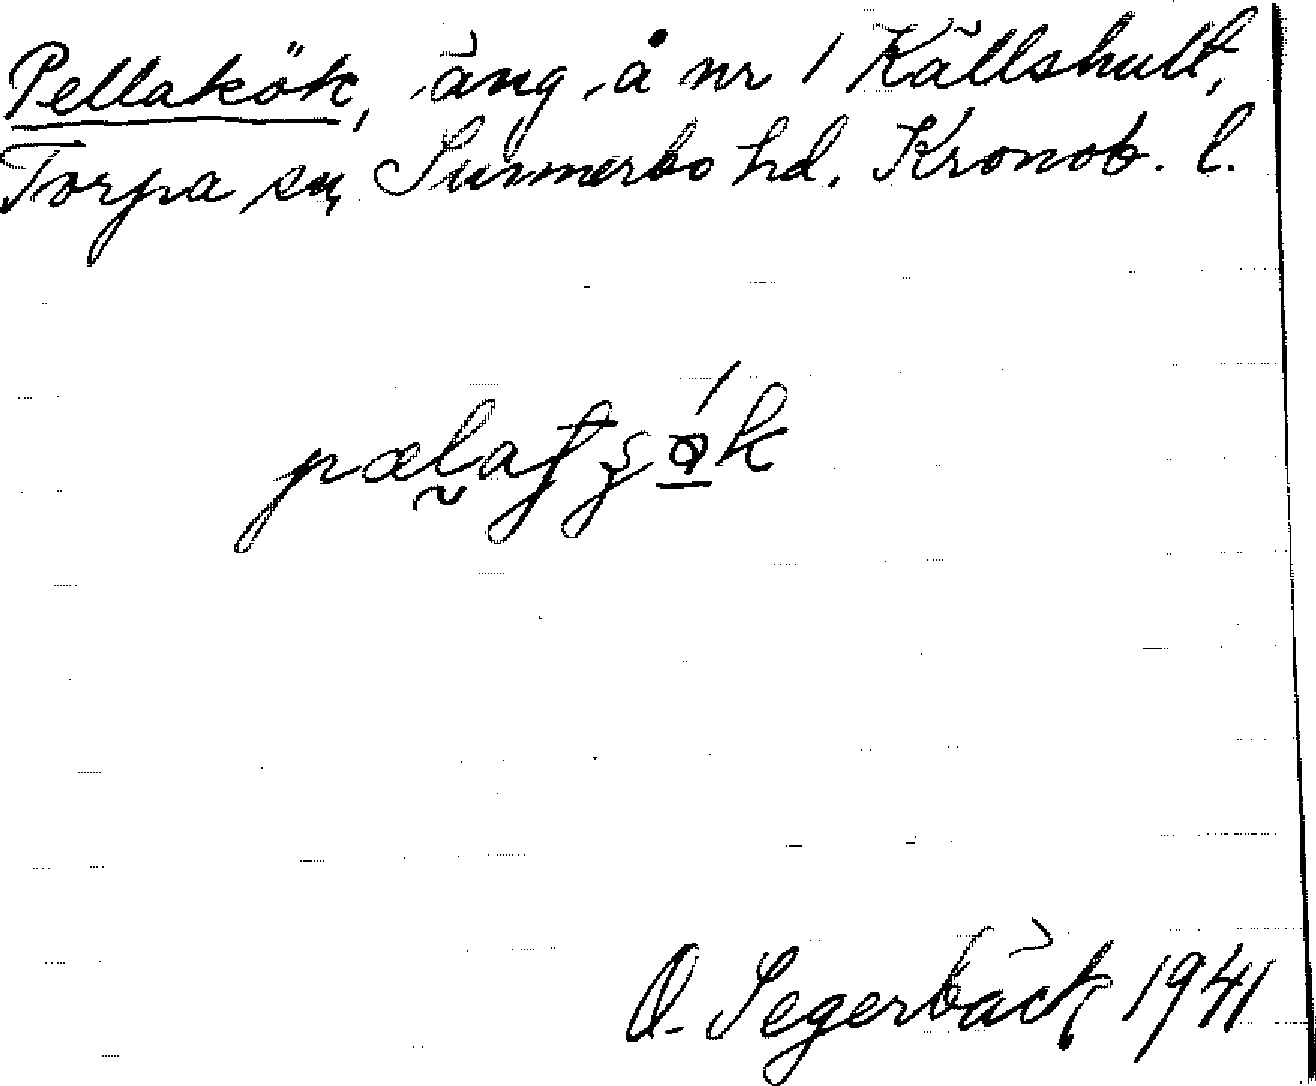 Pellakök, äng å nr 1 Källshult,
Torpa sn, Sunnerbo hd. Kronob. l.
O. Segerbäck 1941